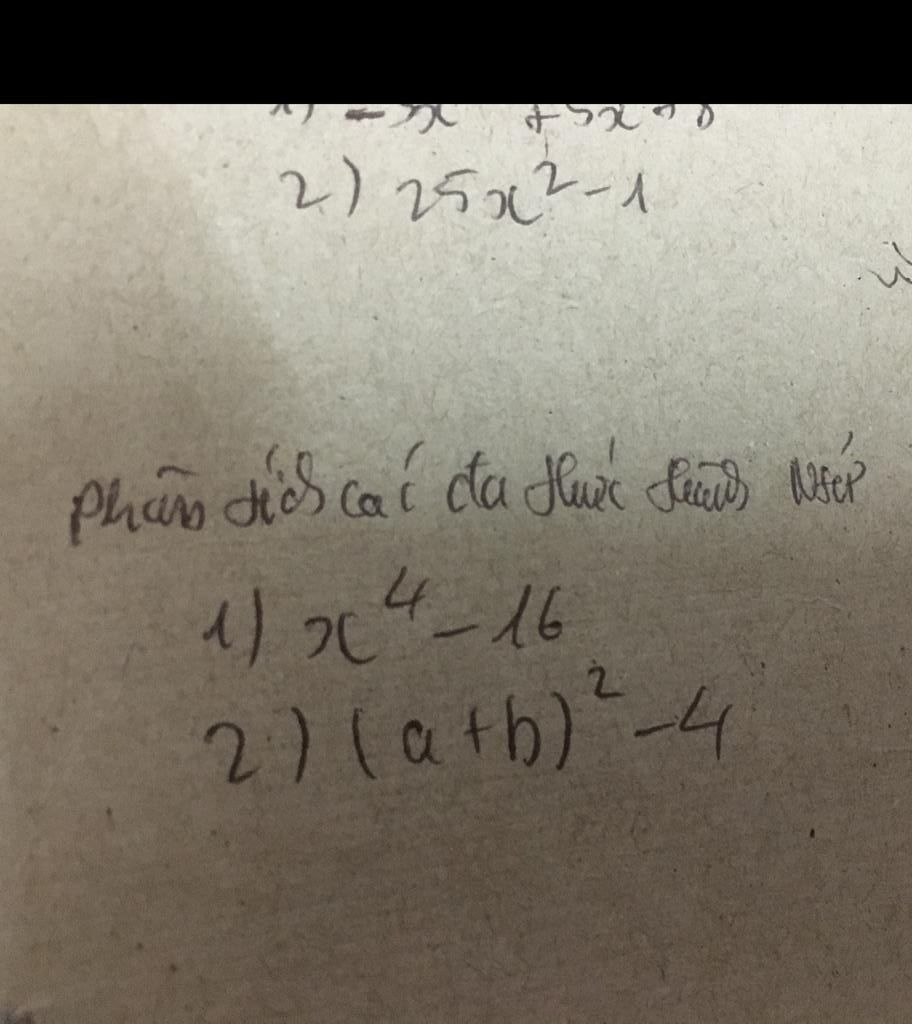 2) 25x² - 1
Phân tích các đa thức thành
1) x⁴ - 16
2) (a + b)² - 4